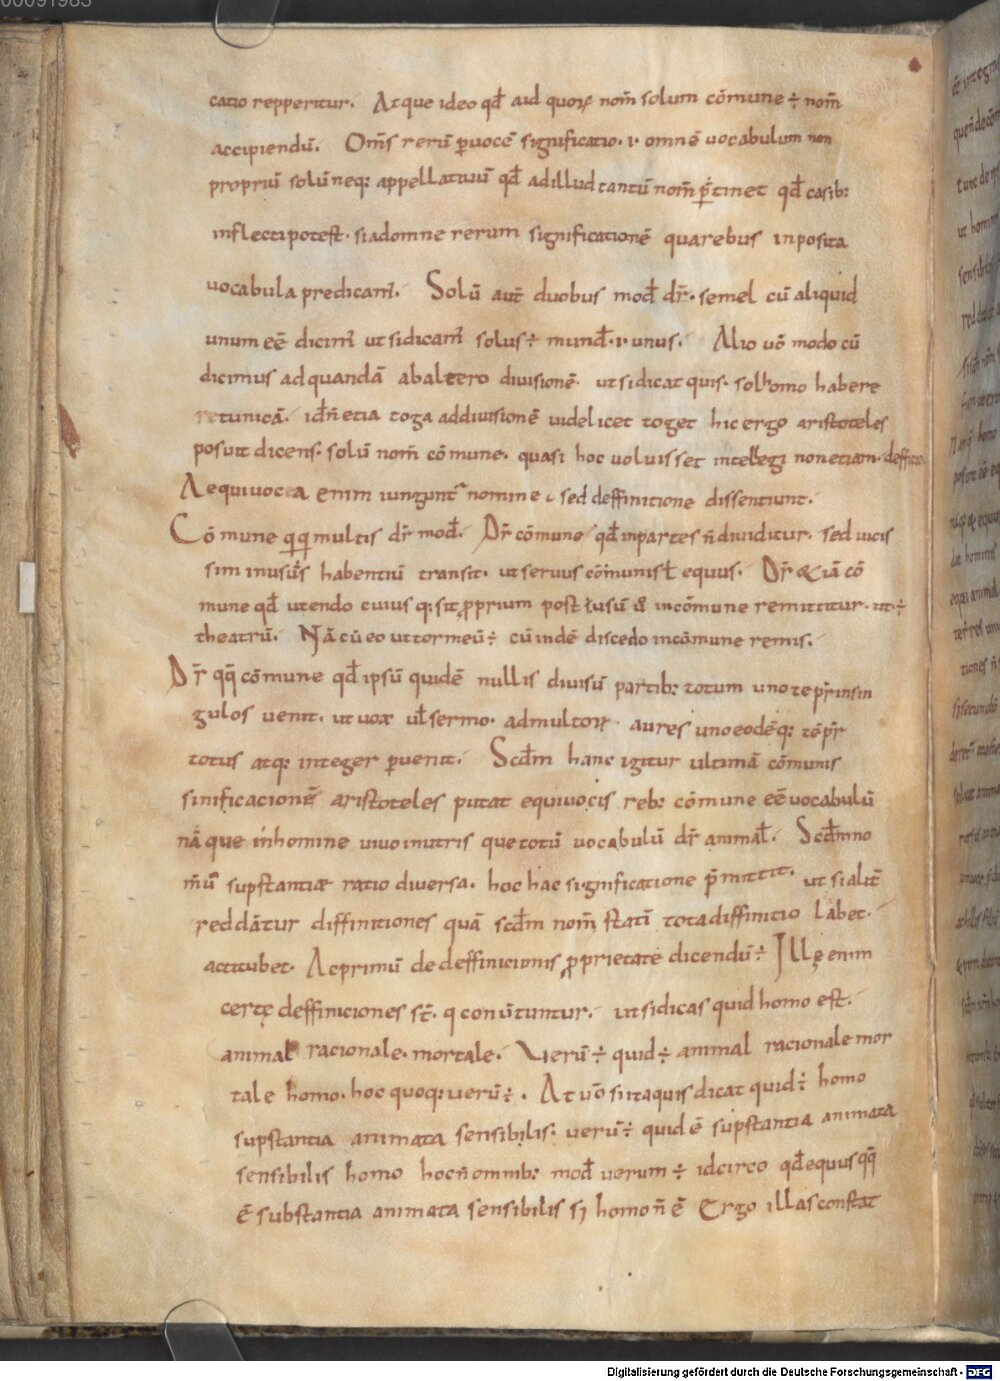 00091983
catio repperitur. Atque ideo qđ aid quorꝝ nom̄ solum cōmune ÷ nom̄
accipiendū. Om̄s rerū ꝑ uocē significatio .i. omnē uocabulum non
propriū solū neq; appellatiuū qđ ad illud tantū nom̄ ꝑtinet qđ casib;
inflecti potest. si ad omne rerum significationē quarebus inposita
uocabula predicam̄. Solū aut̄ duobus mod̄ dr̄. semel cū aliquid
unum eē dicim̄ ut si dicam̄ solus ÷ mund̄ .i. unus. Alio uō modo cū
dicimus ad quandā ab altero diuisionē. ut si dicat quis. sol homo habere
tunicā. id n̄ etiā toga ad diuisionē uidelicet toget hic ergo aristoteles
posuit dicens. solū nom̄ cōmune. quasi hoc uoluisset intellegi non etiam
Aequiuoca enim iungunt̄ nomine sed deffinitione dissentiunt.
Cōmune qq multis dr̄ mod̄. Dr̄ cōmune qđ in partes n̄ diuiditur. sed uicis
sim in usus habentiū transit. ut seruus cōmunis ł equus. Dr̄ & iā cō
mune qđ utendo cuius q; sit ꝓprium post usū in cōmune remittitur. ut ÷
theatrū. Nā cū eo utor meū ÷ cū indē discedo in cōmune remis.
Dr̄ qq̄ cōmune qđ ipsū quidē nullis diuisū partib; totum uno tēpr̄ in sin
gulos uenit. ut uox uł sermo. ad multorꝝ aures uno eodēq; tēpr̄
totus atq; integer ꝑuenit. Scd̄m hanc igitur ultimā cōmunis
sinificacionē aristoteles putat equiuocis reb; cōmune eē uocabulū
nā que in homine uiuo in utris que totū uocabulū dr̄ animal. Scd̄m no
m̄ u supstantiae ratio diuersa. hoc hac significatione p̄mittit. ut si alit̄
reddātur diffinitiones quā scd̄m nom̄ statī tota diffinitio labet.
ac titubet. Ac primū de deffinicionis ꝓprietate dicendū ÷ Illę enim
certę deffiniciones st̄. q conūtuntur. ut si dicas quid homo est.
animal racionale. mortale. Uerū ÷ quid ÷ animal racionale mor
tale homo. hoc quoq; uerū ÷. At uō si ita quis dicat quid ÷ homo
supstantia animata sensibilis. uerū ÷ quid ē supstantia animata
sensibilis homo hoc n̄ omnib; mod̄ uerum ÷ idcirco qđ equus qq̄
ē substantia animata sensibilis sꝫ homo n̄ ē Ergo illas constat
Digitalisierung gefördert durch die Deutsche Forschungsgemeinschaft - DFG